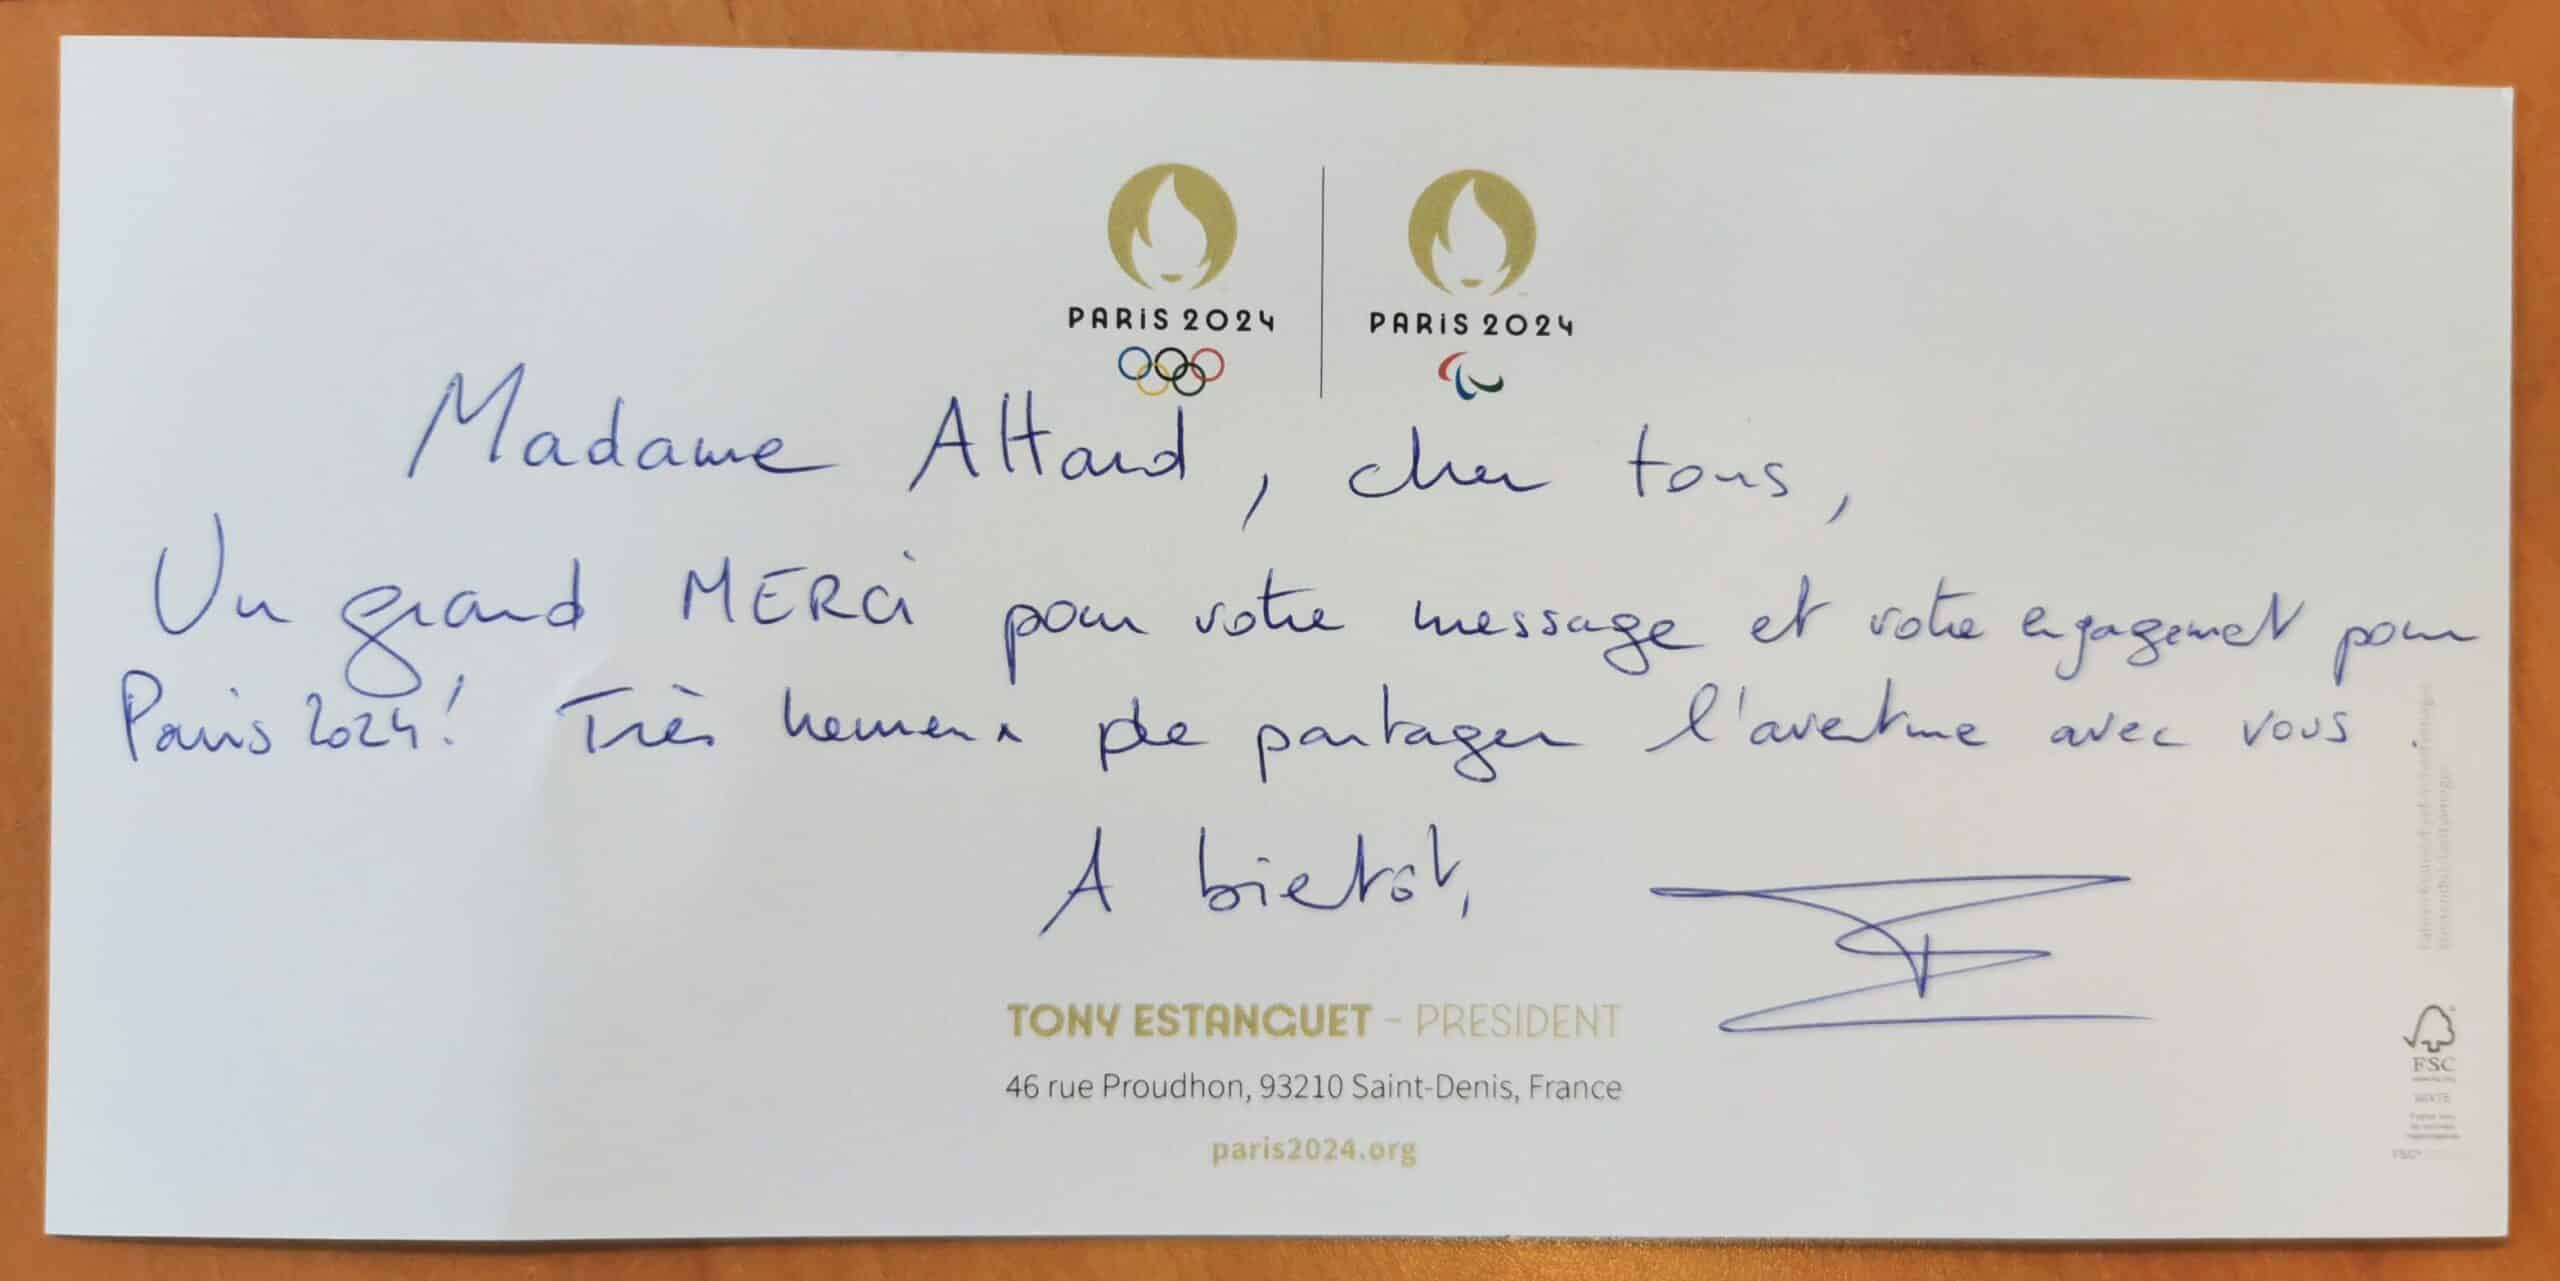 PARIS 2024 PARIS 2024
Madame Attard, cher tous,
Un grand MERCi pour votre message et votre engagement pour
Paris 2024! Très heureux de partager l'aventure avec vous.
A bientôt,
TONY ESTANGUET - PRESIDENT
46 rue Proudhon, 93210 Saint-Denis, France
paris2024.org
FSC